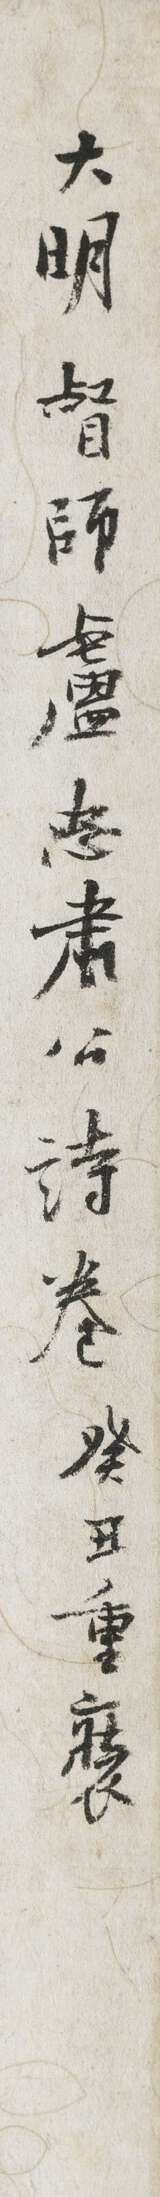 大明督師盧忠肅公詩卷癸丑重裝